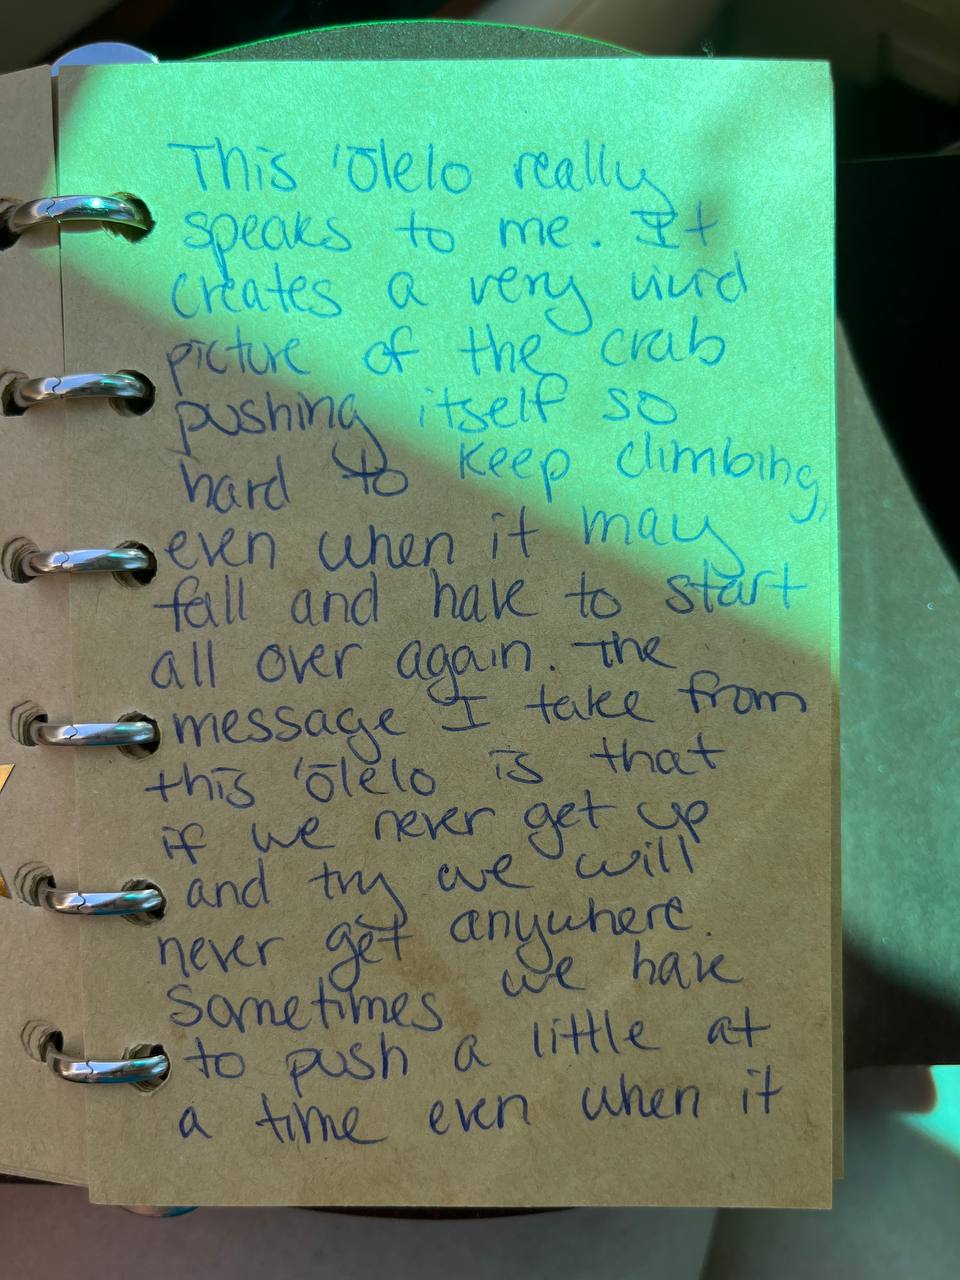 This 'Ōlelo really
speaks to me. It
creates a very vivid
picture of the crab
pushing itself so
hard to keep climbing,
even when it may
fall and have to start
all over again. The
message I take from
this 'Ōlelo is that
if we never get up
and try we will
never get anywhere.
Sometimes we have
to push a little at
a time even when it